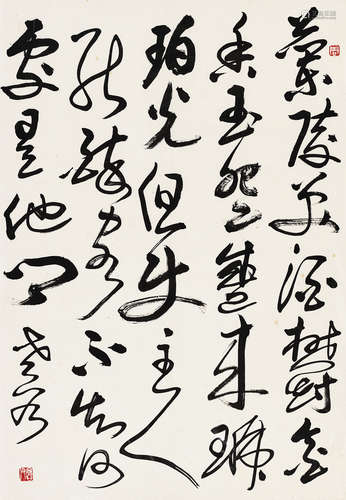 蘭陵美酒鬱金
香玉盌盛来琥
珀光但使主人
能醉客不知何
處是他鄉